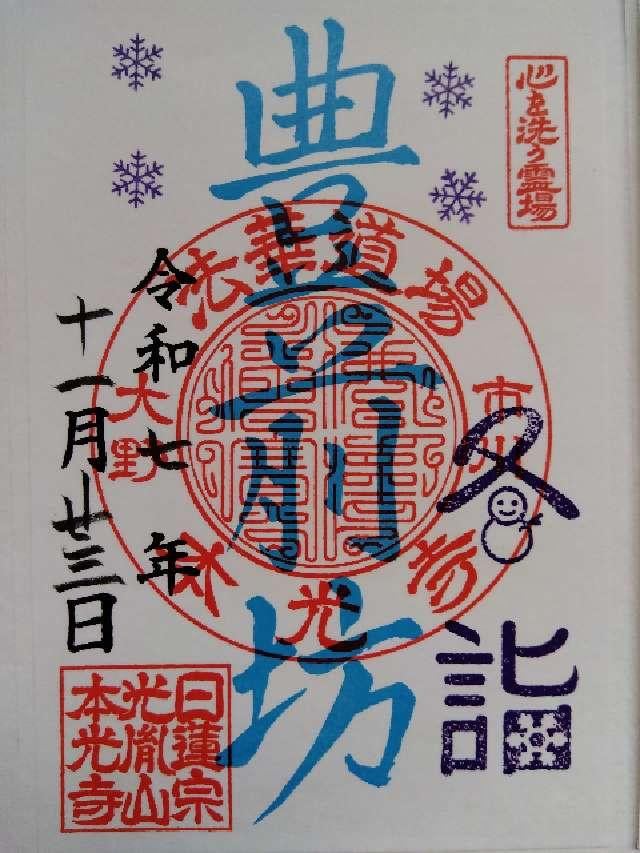 心を洗う霊場
豊前坊
法華道場
市川
大野
本光寺
冬
詣
令和七年
十一月廿三日
日蓮宗
光胤山
本光寺